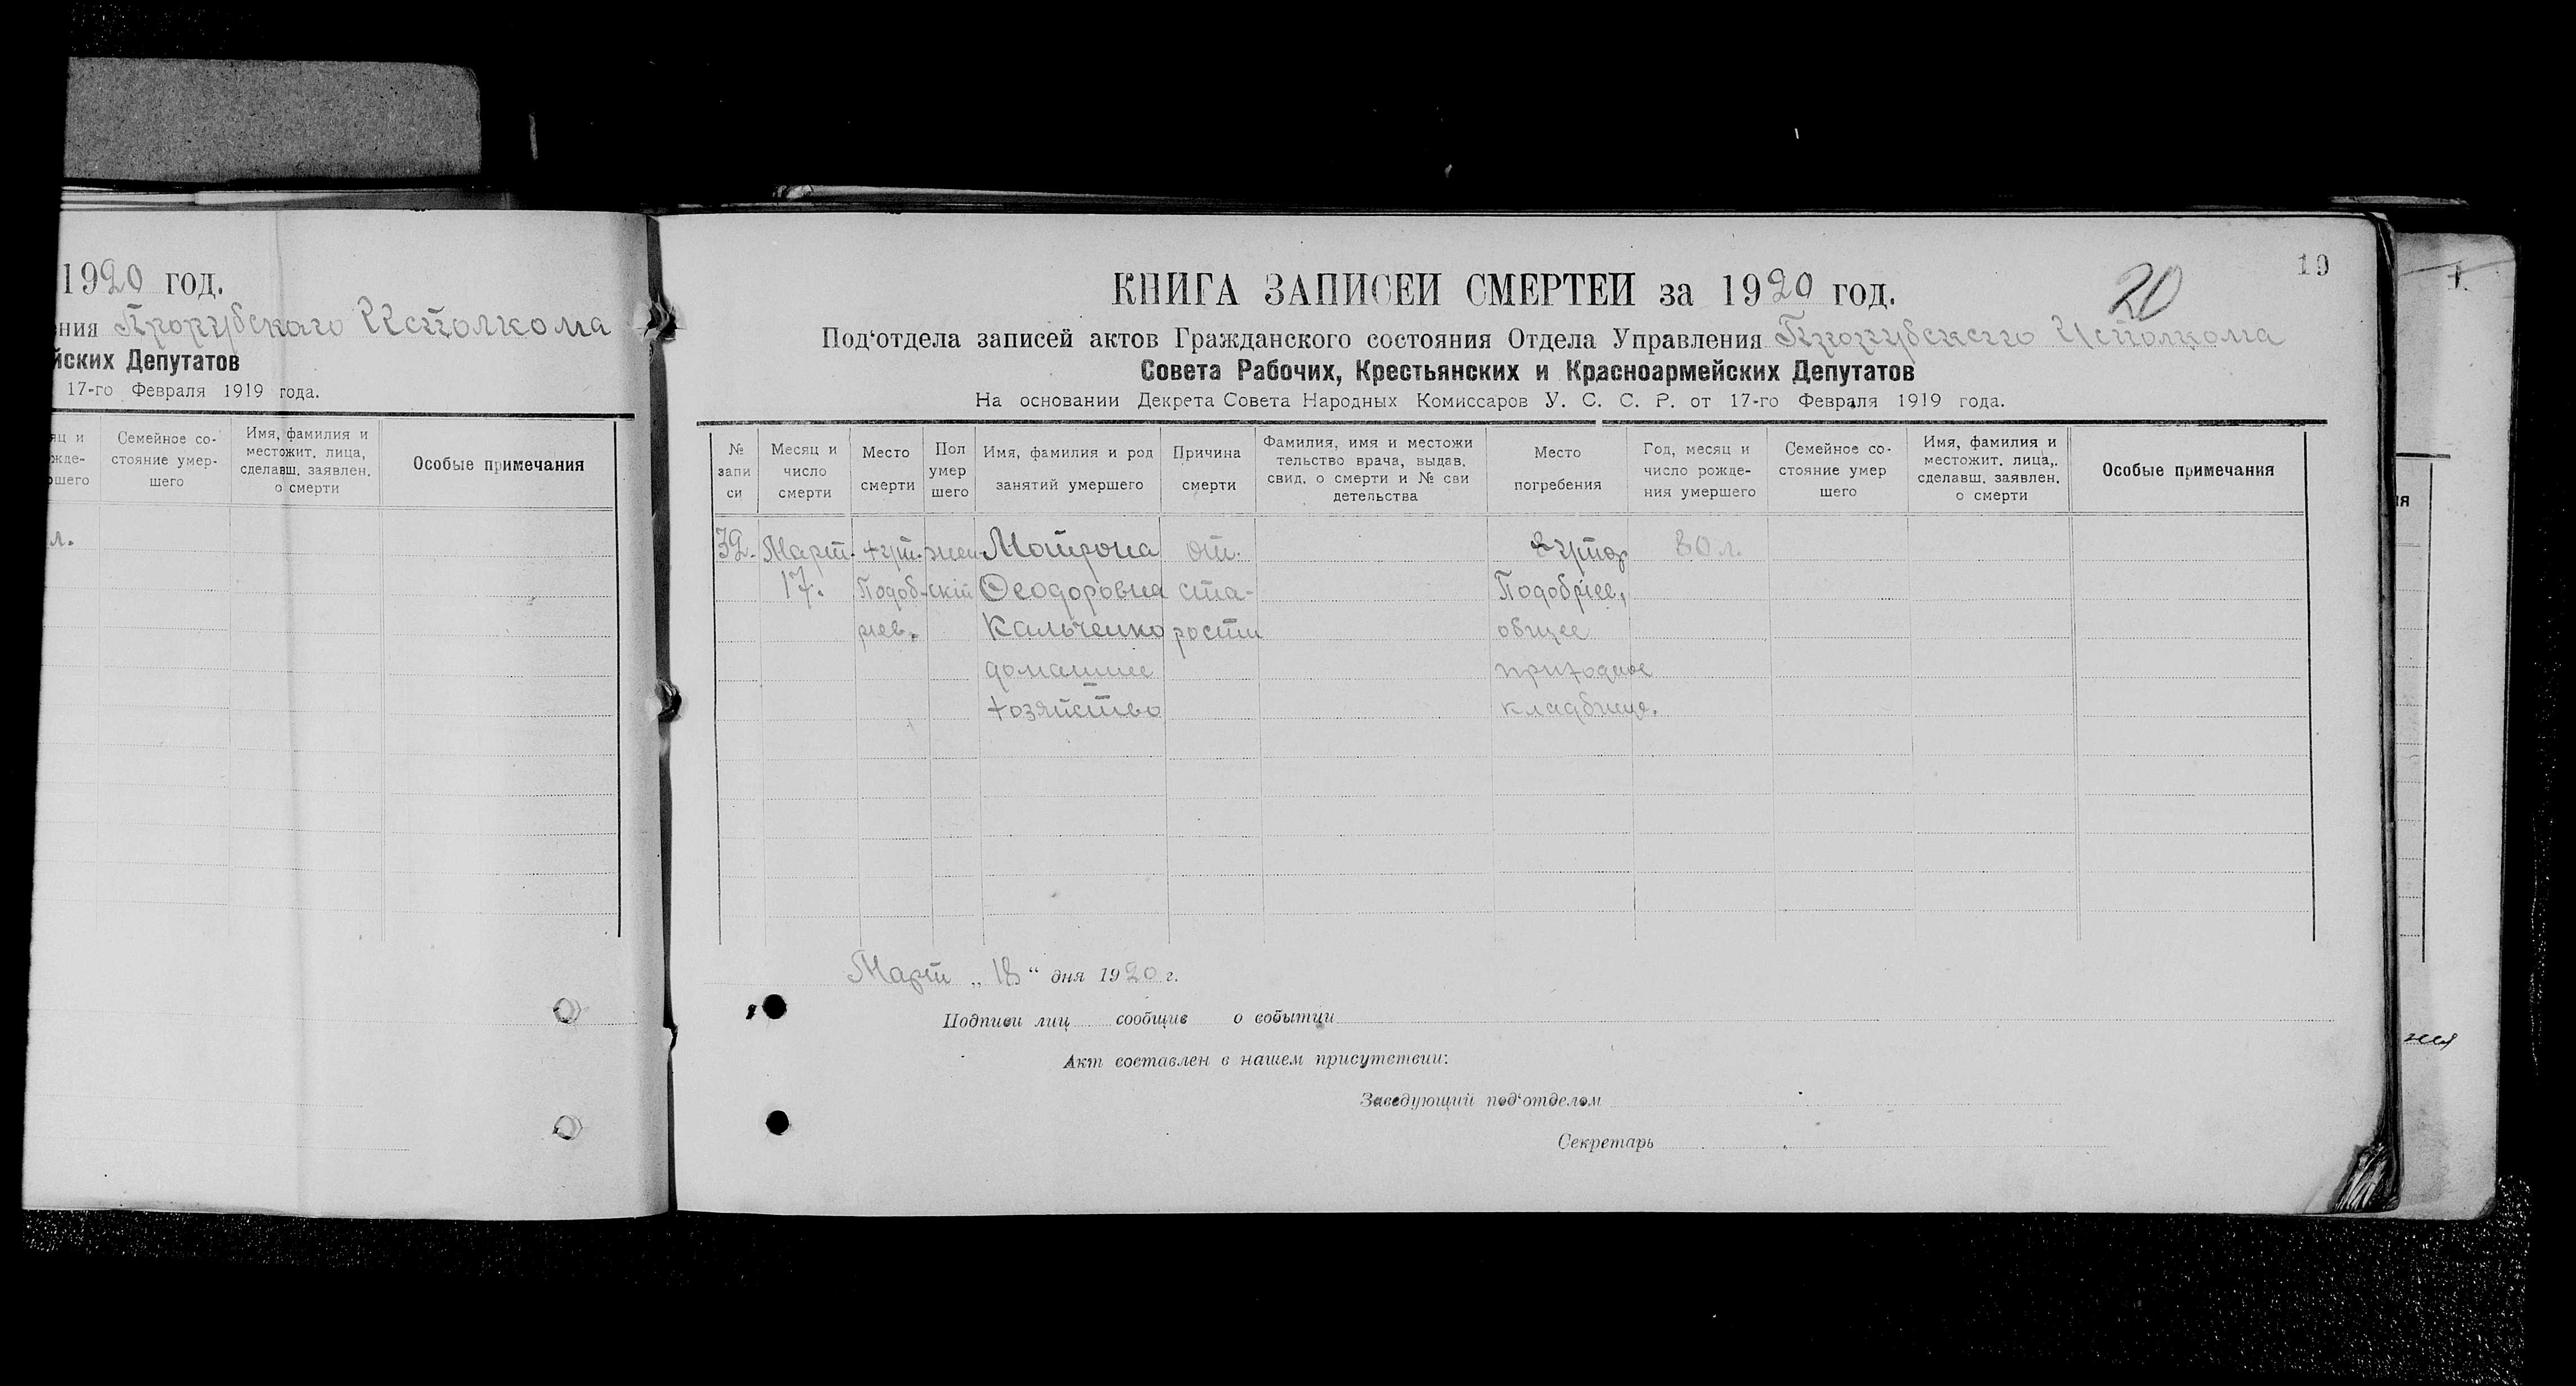 1920 год.
ния Прорубского Исполкома
йских Депутатов
17-го Февраля 1919 года.
Семейное со-
стояние умер-
шего
Имя, фамилия и
местожит. лица,
сделавш. заявлен.
о смерти
Особые примечания
л.
19
20
КНИГА ЗАПИСЕЙ СМЕРТЕЙ за 1920 год.
Под‘отдела записей актов Гражданского состояния Отдела Управления Прорубского Исполкома
Совета Рабочих, Крестьянских и Красноармейских Депутатов
На основании Декрета Совета Народных Комиссаров У. С. С. Р. от 17-го Февраля 1919 года.
№
запи
си
Месяц и
число
смерти
Место
смерти
Пол
умер
шего
Имя, фамилия и род
занятий умершего
Причина
смерти
Фамилия, имя и местожи
тельство врача, выдав.
свид. о смерти и № сви
детельства
Место
погребения
Год, месяц и
число рожде-
ния умершего
Семейное со-
стояние умер
шего
Имя, фамилия и
местожит. лица,
сделавш. заявлен.
о смерти
Особые примечания
32. Март. хут. жен- Мотрона от. хутор 80 л.
17. Подоб- скій Ѳеодоровна ста-
Кальченко рости общее
домашнее приходское
хозяйство кладбище.
Март „ 18 “ дня 1920 г.
Подписи лиц сообщив о событии
Акт составлен в нашем присутствии:
Заведующий под‘отделом
Секретарь